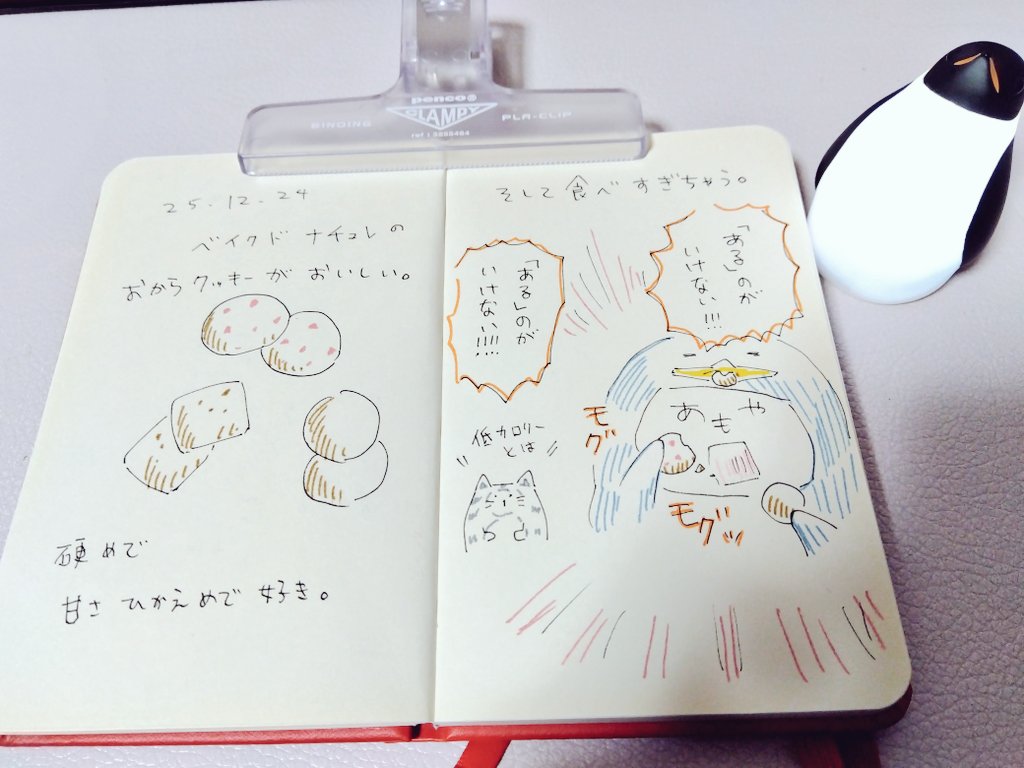 penco®
CLAMPY
BINDING
PLA-CLIP
25.12.24
ベイクド ナチュレの
おからクッキーが おいしい。
硬めで
甘さ ひかえめで 好き。
そして食べすぎちゃう。
「ある」のが
いけない!!!
「ある」のが
いけない!!!!
低カロリー
とは
モグ
あもや
モグッ